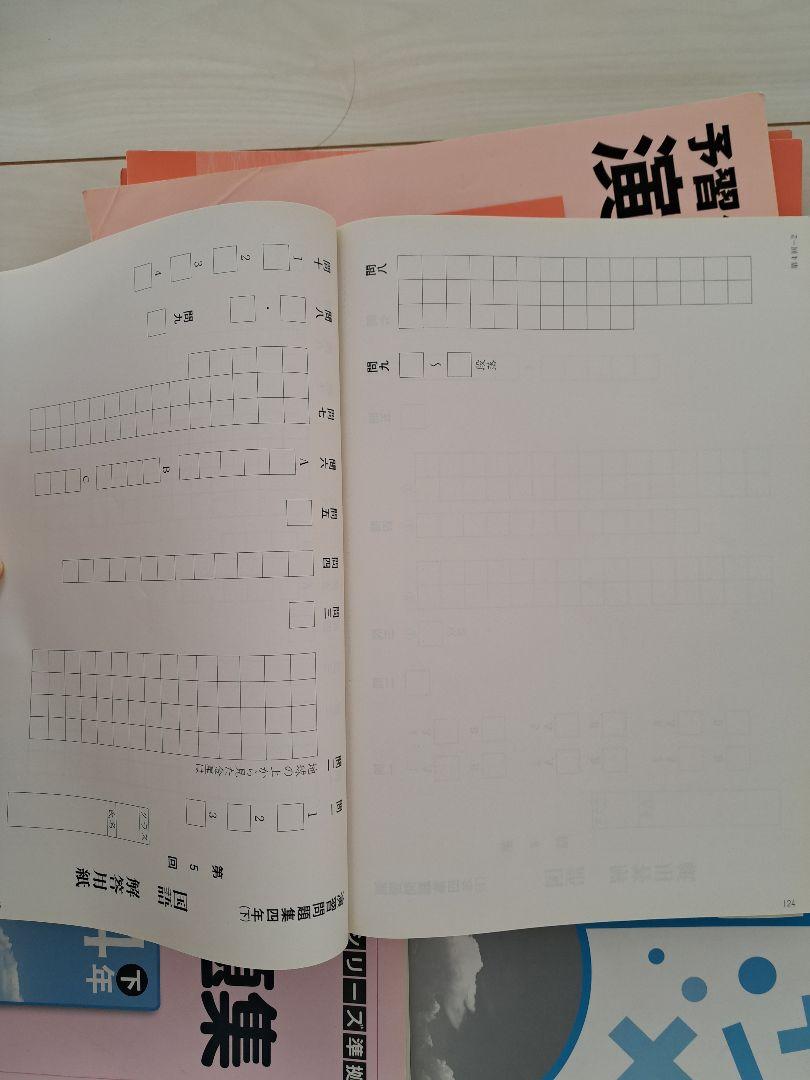 予習
演
第4回-2
問八
問九 〜 段落
124
演習問題集四年(下)
国語 解答用紙
第5回
クラス
氏名
問一 1 2 3
問二 地球の上から見た金星は
問三
問四
問五
問六 A B C
問七
問八 ・
問九
問十 1 2 3 4
リーズ準拠
題集
4年
下